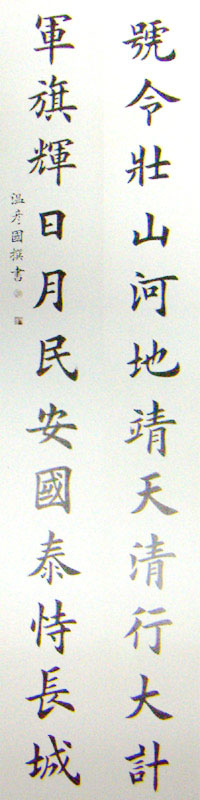 號令壯山河地靖天清行大計
軍旗輝日月民安國泰恃長城
溫彥國撰書